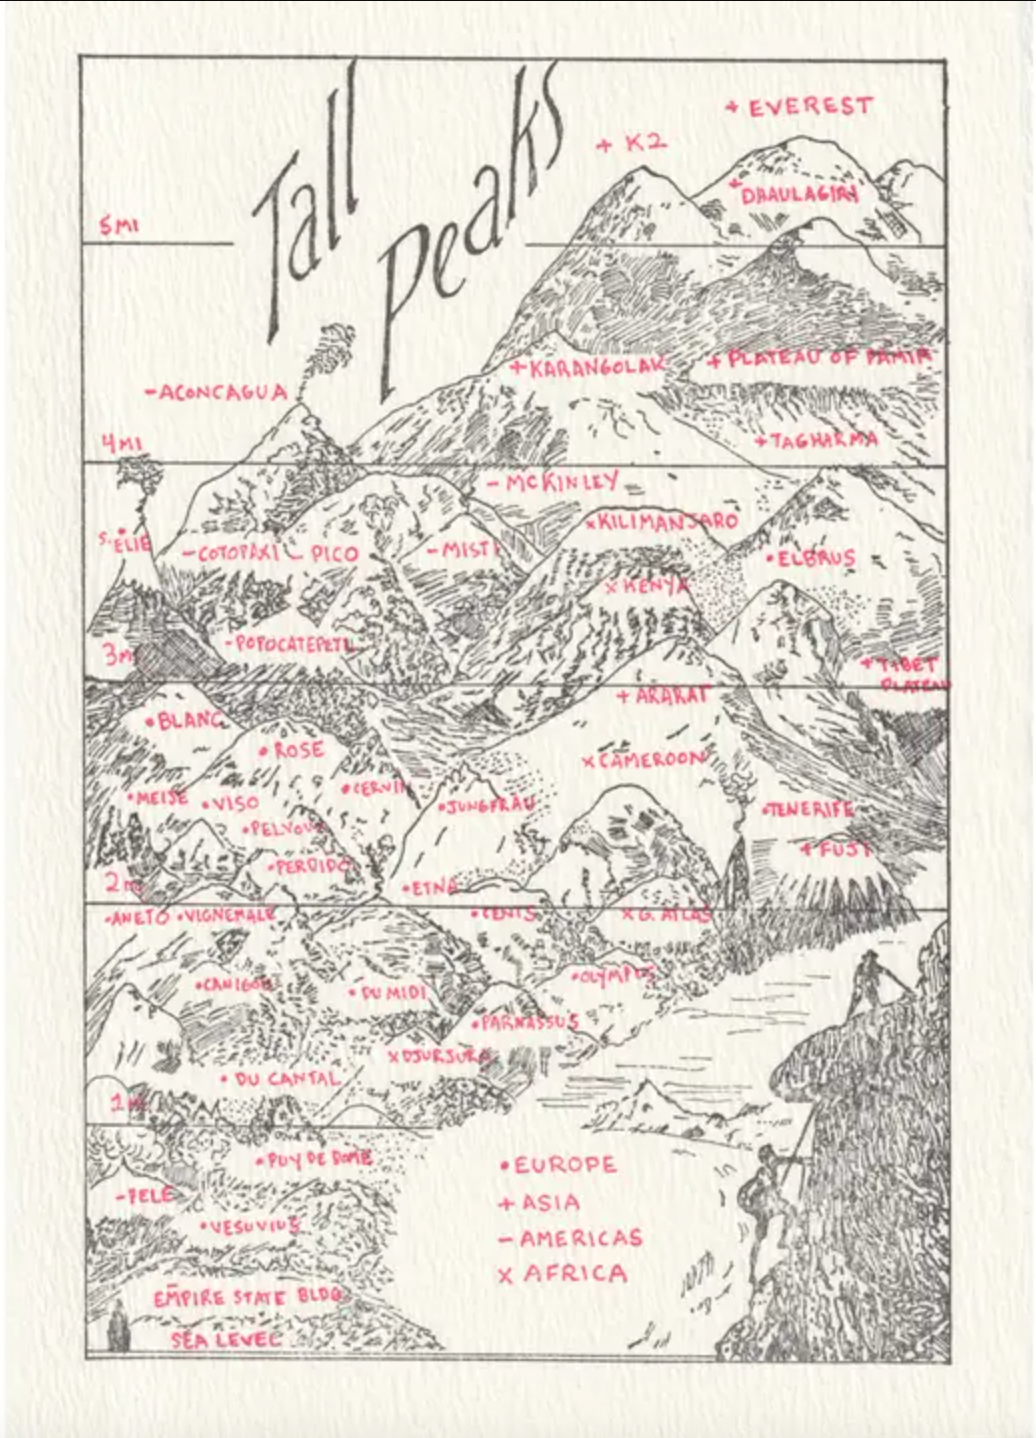 Tall
Peaks
+ EVEREST
+ K2
+ DHAULAGIRI
5 MI
+ KARANGOLAK
+ PLATEAU OF PAMIR
- ACONCAGUA
4 MI
+ TAGHARMA
- MCKINLEY
x KILIMANJARO
S. ELIE
- COTOPAXI
- PICO
- MISTI
• ELBRUS
x KENYA
- POPOCATEPETL
3 M
+ TIBET
PLATEAU
+ ARARAT
• BLANC
• ROSE
x CAMEROON
• CERVIN
• MEIJE
• VISO
• JUNGFRAU
• TENERIFE
• PELVOUX
+ FUJI
• PERDIDO
2 M
• ETNA
• ANETO
• VIGNEMALE
• CENIS
x G. ATLAS
• CANIGOU
• DU MIDI
• OLYMPUS
• PARNASSUS
x DJURJURA
• DU CANTAL
1 M
• PUY DE DOME
• EUROPE
- PELE
+ ASIA
• VESUVIUS
- AMERICAS
x AFRICA
EMPIRE STATE BLDG
SEA LEVEL